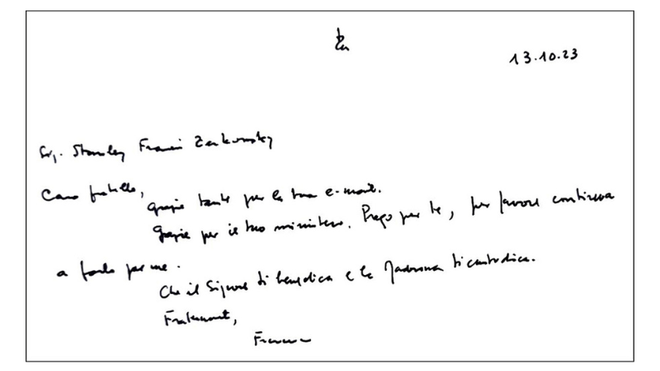 13.10.23
Sig. Stanley Francis
Caro fratello,
grazie tante per la tua e-mail.
Grazie per il tuo ministero. Prego per te, per favore continua
a farlo per me.
Che il Signore ti benedica e la Madonna ti custodisca.
Fraternamente,